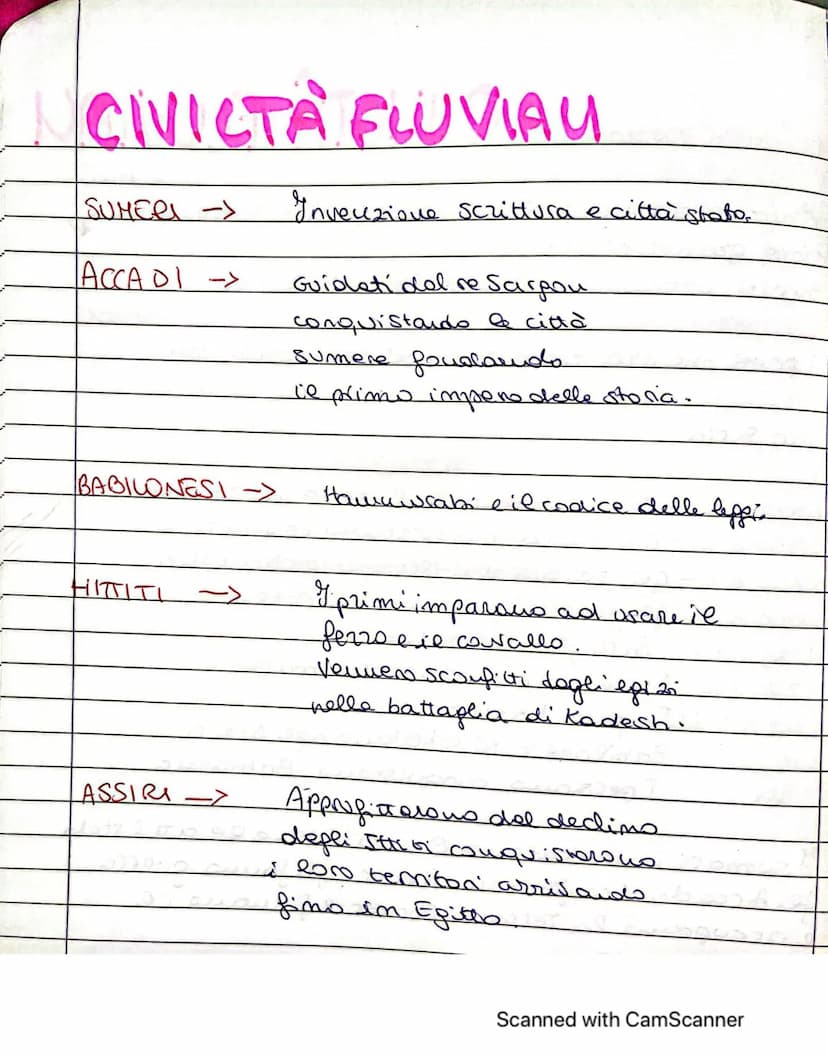 CIVILTÀ FLUVIALI
SUMERI -> Invenzione scrittura e città stato.
ACCADI -> Guidati dal re Sargon
conquistando le città
sumere fondando
il primo impero della storia.
BABILONESI -> Hammurabi e il codice delle leggi.
HITTITI -> I primi imparano ad usare il
ferro e il cavallo.
Vennero sconfitti dagli egizi
nella battaglia di Kadesh.
ASSIRI -> Approfittarono del declino
degli Ittiti conquistarono
i loro territori arrivando
fino in Egitto.
Scanned with CamScanner